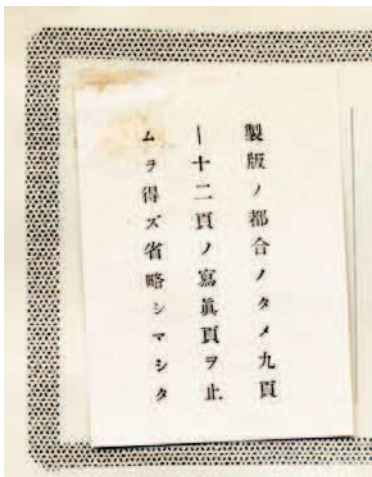 製版ノ都合ノタメ九頁
―十二頁ノ寫眞頁ヲ止
ムヲ得ズ省略シマシタ